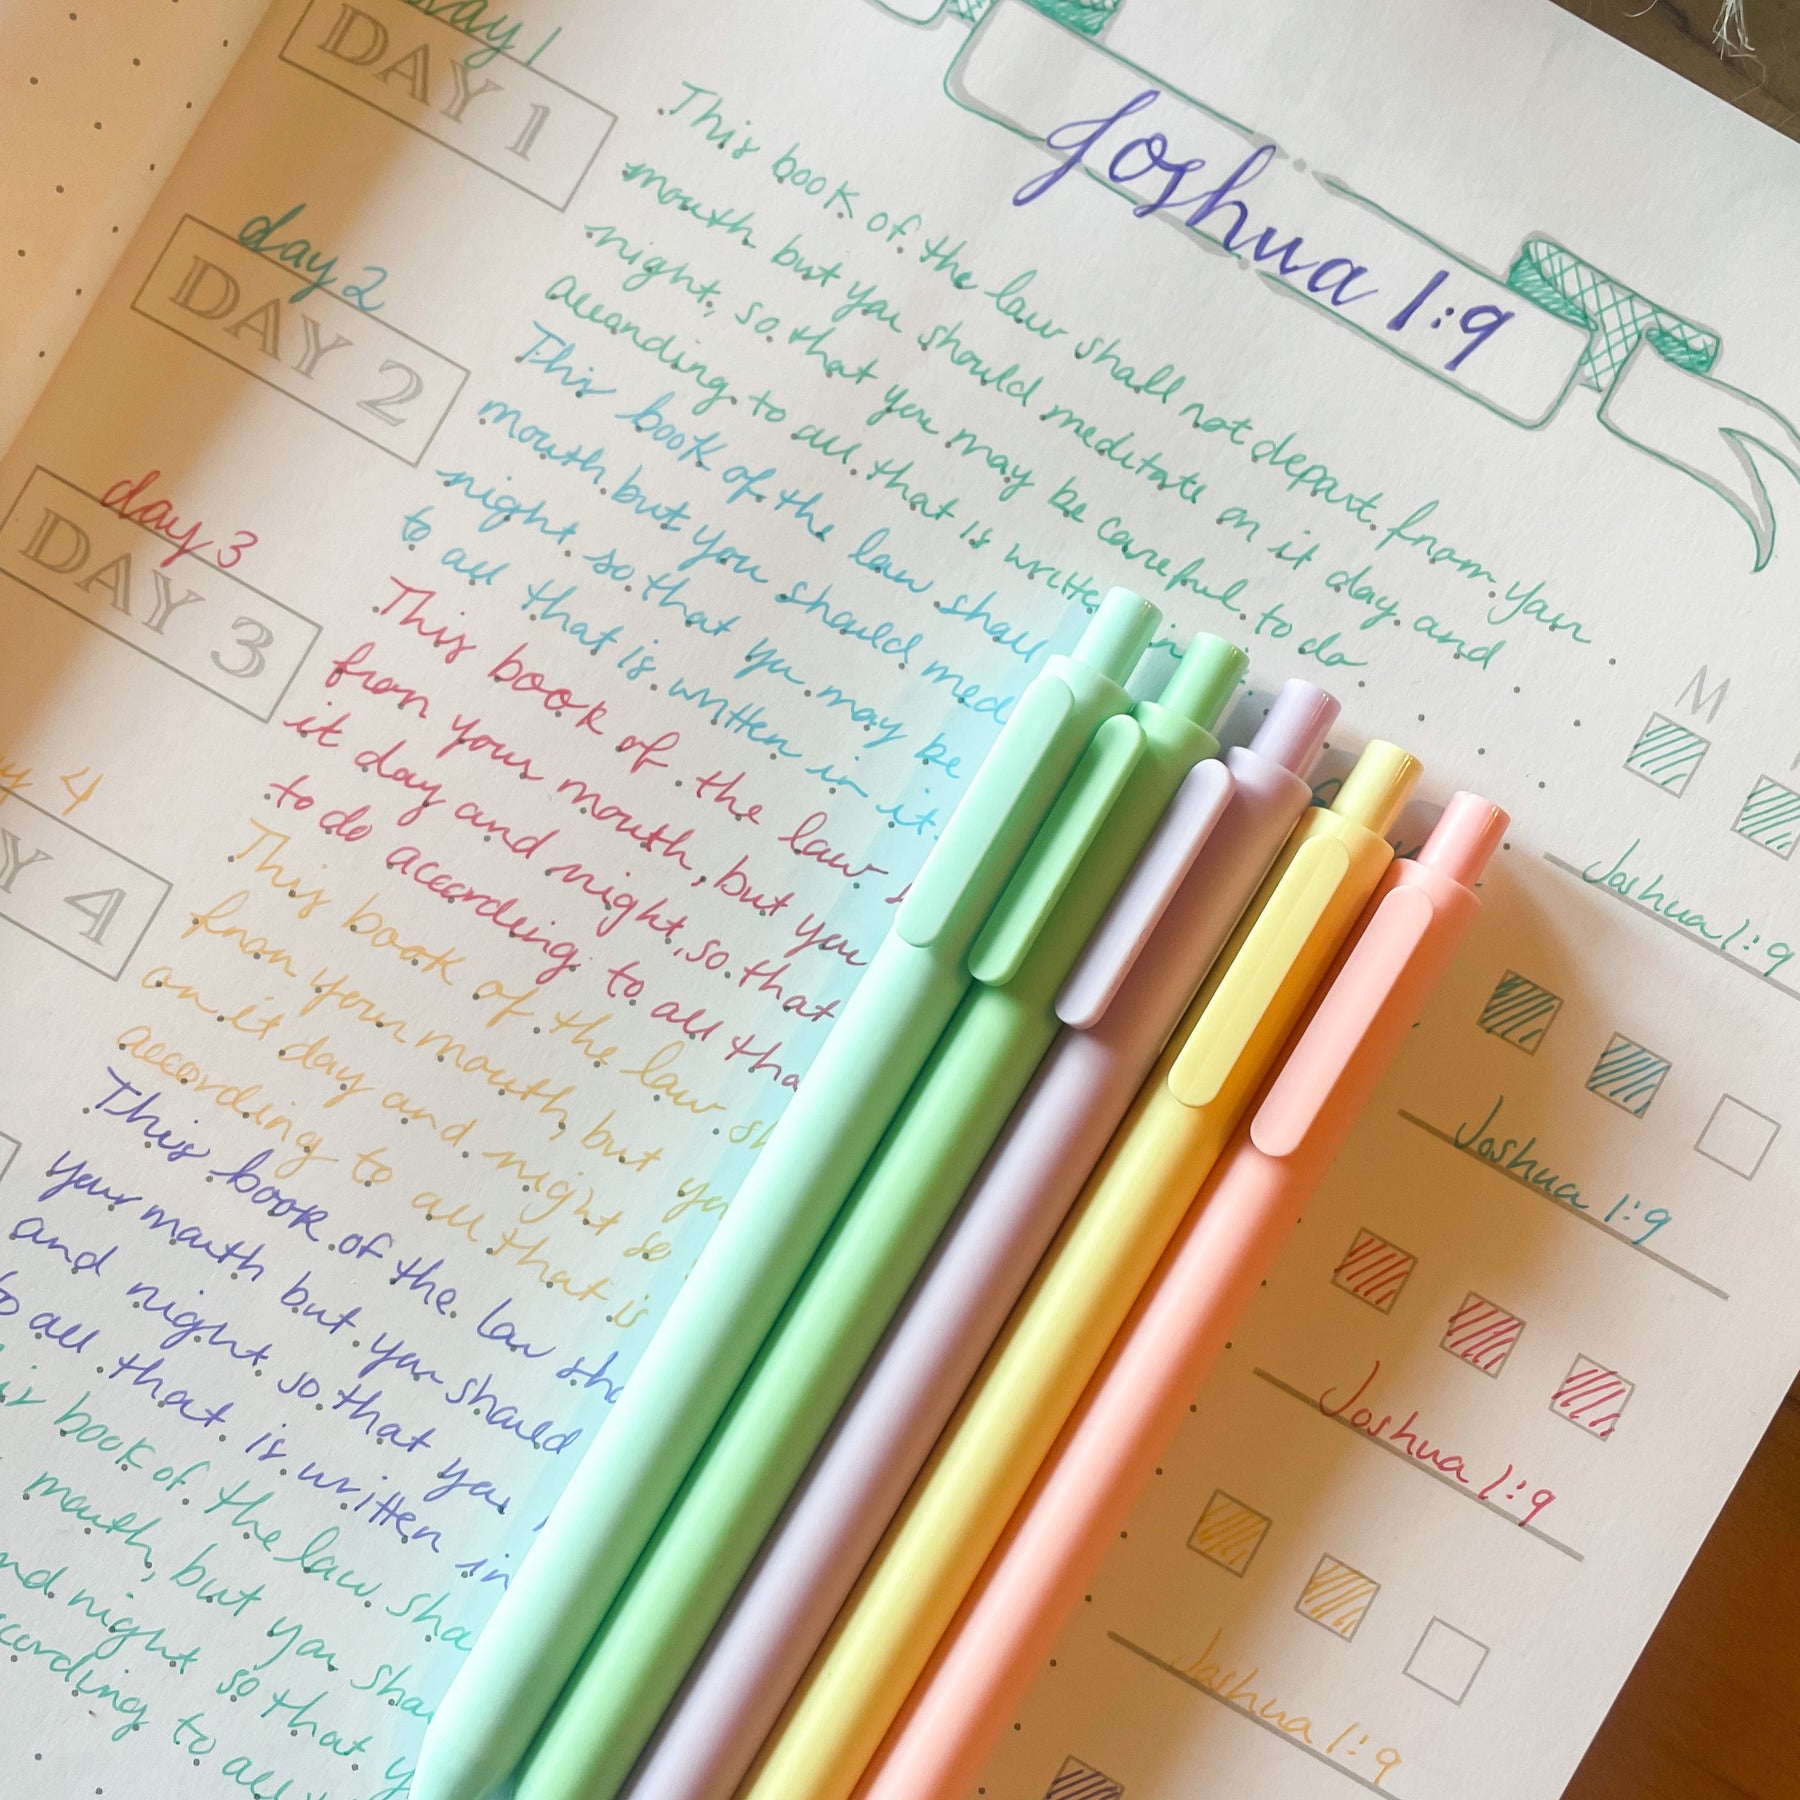 day 1
DAY 1
Joshua 1:9
This book of the law shall not depart from your
mouth but you should meditate on it day and
night, so that you may be careful to do
according to all that is written in
day 2
DAY 2
This book of the law shall
mouth but you should med
night so that you may be
to all that is written in it.
day 3
DAY 3
This book of the law
from your mouth, but you
it day and night, so that
to do according to all tha
y 4
Y 4
This book of the law sh
from your mouth, but you
on it day and night so
according to all that is
This book of the law sha
your mouth but you should
and night so that you
to all that is written in
is book of the law sha
mouth, but you sha
nd night so that y
cording to all
M
Joshua 1:9
Joshua 1:9
Joshua 1:9
Joshua 1:9